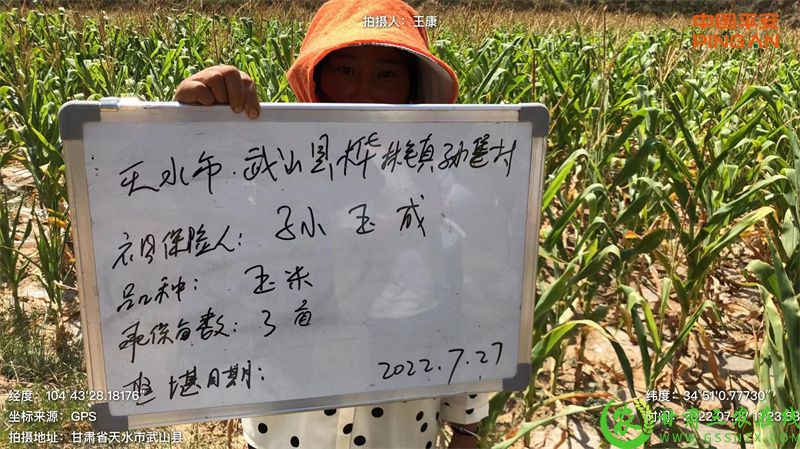 拍摄人：王康
中国平安
PING AN
天水市·武山县桦林镇孙堡村
被保险人：孙玉成
品种：玉米
承保亩数：3亩
查堪日期：2022.7.27
经度：104°43'28.18176"
坐标来源：GPS
拍摄地址：甘肃省天水市武山县
纬度：34°51'0.77730"
时间：2022-07-27 11:23:53
www.gssnzx.com